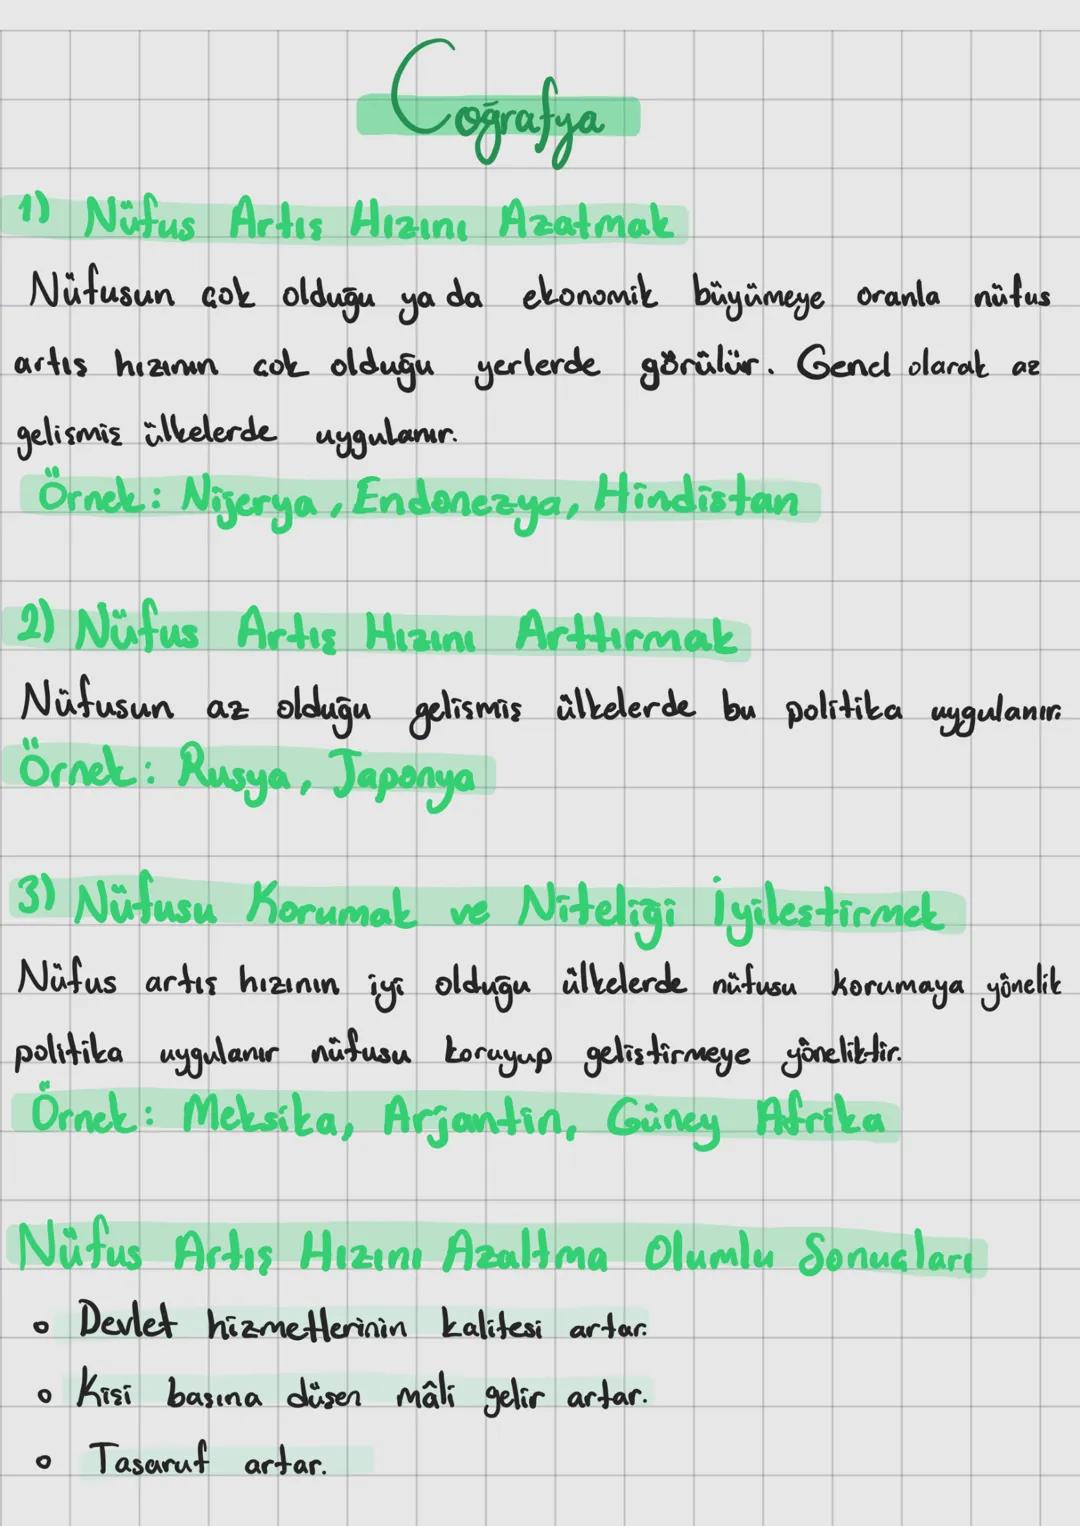 Coğrafya
1) Nüfus Artış Hızını Azatmak
Nüfusun çok olduğu ya da ekonomik büyümeye oranla nüfus
artış hızının çok olduğu yerlerde görülür. Genel olarak az
gelişmiş ülkelerde uygulanır.
Örnek: Nijerya, Endonezya, Hindistan
2) Nüfus Artış Hızını Arttırmak
Nüfusun az olduğu gelişmiş ülkelerde bu politika uygulanır.
Örnek: Rusya, Japonya
3) Nüfusu Korumak ve Niteliği İyileştirmek
Nüfus artış hızının iyi olduğu ülkelerde nüfusu korumaya yönelik
politika uygulanır nüfusu koruyup geliştirmeye yöneliktir.
Örnek: Meksika, Arjantin, Güney Afrika
Nüfus Artış Hızını Azaltma Olumlu Sonuçları
o Devlet hizmetlerinin kalitesi artar.
o Kişi başına düşen mâli gelir artar.
o Tasaruf artar.